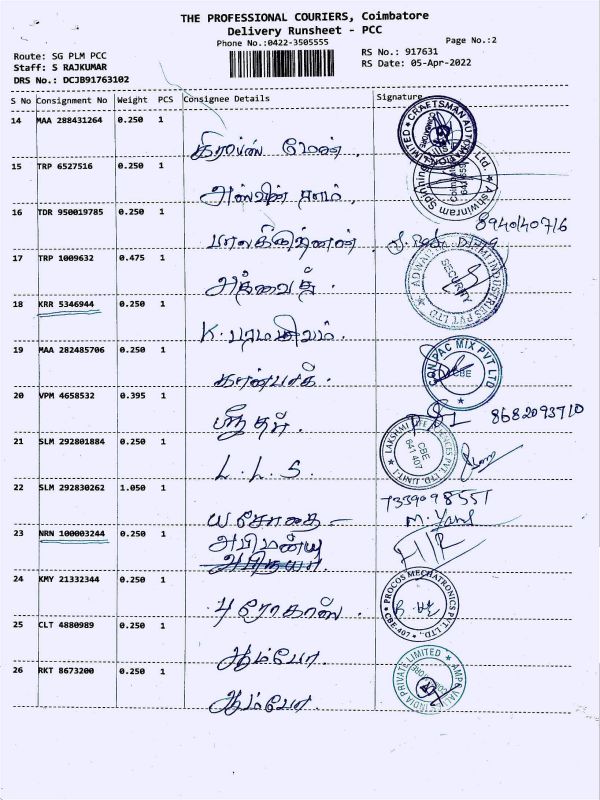 THE PROFESSIONAL COURIERS, Coimbatore
Delivery Runsheet - PCC
Phone No.:0422-3505555
Page No.:2
Route: SG PLM PCC
RS No.: 917631
Staff: S RAJKUMAR
RS Date: 05-Apr-2022
DRS No.: DCJB91763102
S No Consignment No Weight PCS Consignee Details Signature
14 MAA 288431264 0.250 1
கிராப்ஸ் மேன்.
CRAFTSMAN AUTOMATION LIMITED
15 TRP 6527516 0.250 1
அஸ்வின் ராம்.
Ashwinram Spinning Ltd.
16 TDR 950019785 0.250 1
பாலகிருஷ்ணன்.
8940140716
17 TRP 1009632 0.475 1
அத்வைத்.
INDUSTRIES PVT LTD
SECURITY
18 KRR 5346944 0.250 1
K. பரமசிவம்.
19 MAA 282485706 0.250 1
கான்பாக்.
CON PAC MIX PVT LTD
CBE
20 VPM 4658532 0.395 1
8682093710
21 SLM 292801884 0.250 1
L. L. S.
LAKSHMI LIFE SCIENCES PVT. LTD. UNIT-I
CBE
641 407
22 SLM 292830262 1.050 1
யசோதை -
7339098557
23 NRN 100003244 0.250 1
அபிமன்யு
24 KMY 21332344 0.250 1
புரோகாஸ்.
PROCOS MECHATRONICS PVT. LTD.,
CBE-407
25 CLT 4880989 0.250 1
ஆம்போ.
26 RKT 8673200 0.250 1
ஆம்போ.
INDIA PRIVATE LIMITED